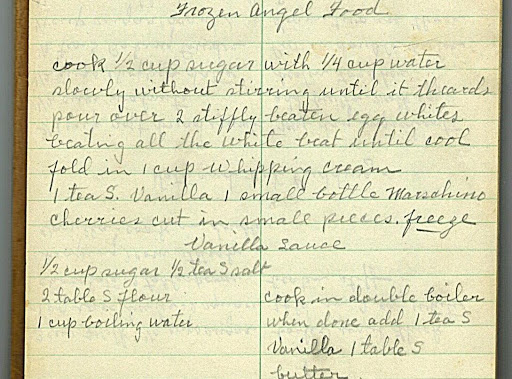 Frozen Angel Food
cook 1/2 cup sugar with 1/4 cup water
slowly without stirring until it theards
pour over 2 stiffly beaten egg whites
beating all the while beat until cool
fold in 1 cup whipping cream
1 tea S. Vanilla 1 small bottle Marschino
cherries cut in small pieces. freeze
Vanilla Sauce
1/2 cup sugar 1/2 tea S salt
2 table S flour
1 cup boiling water
cook in double boiler
when done add 1 tea S
Vanilla 1 table S
butter